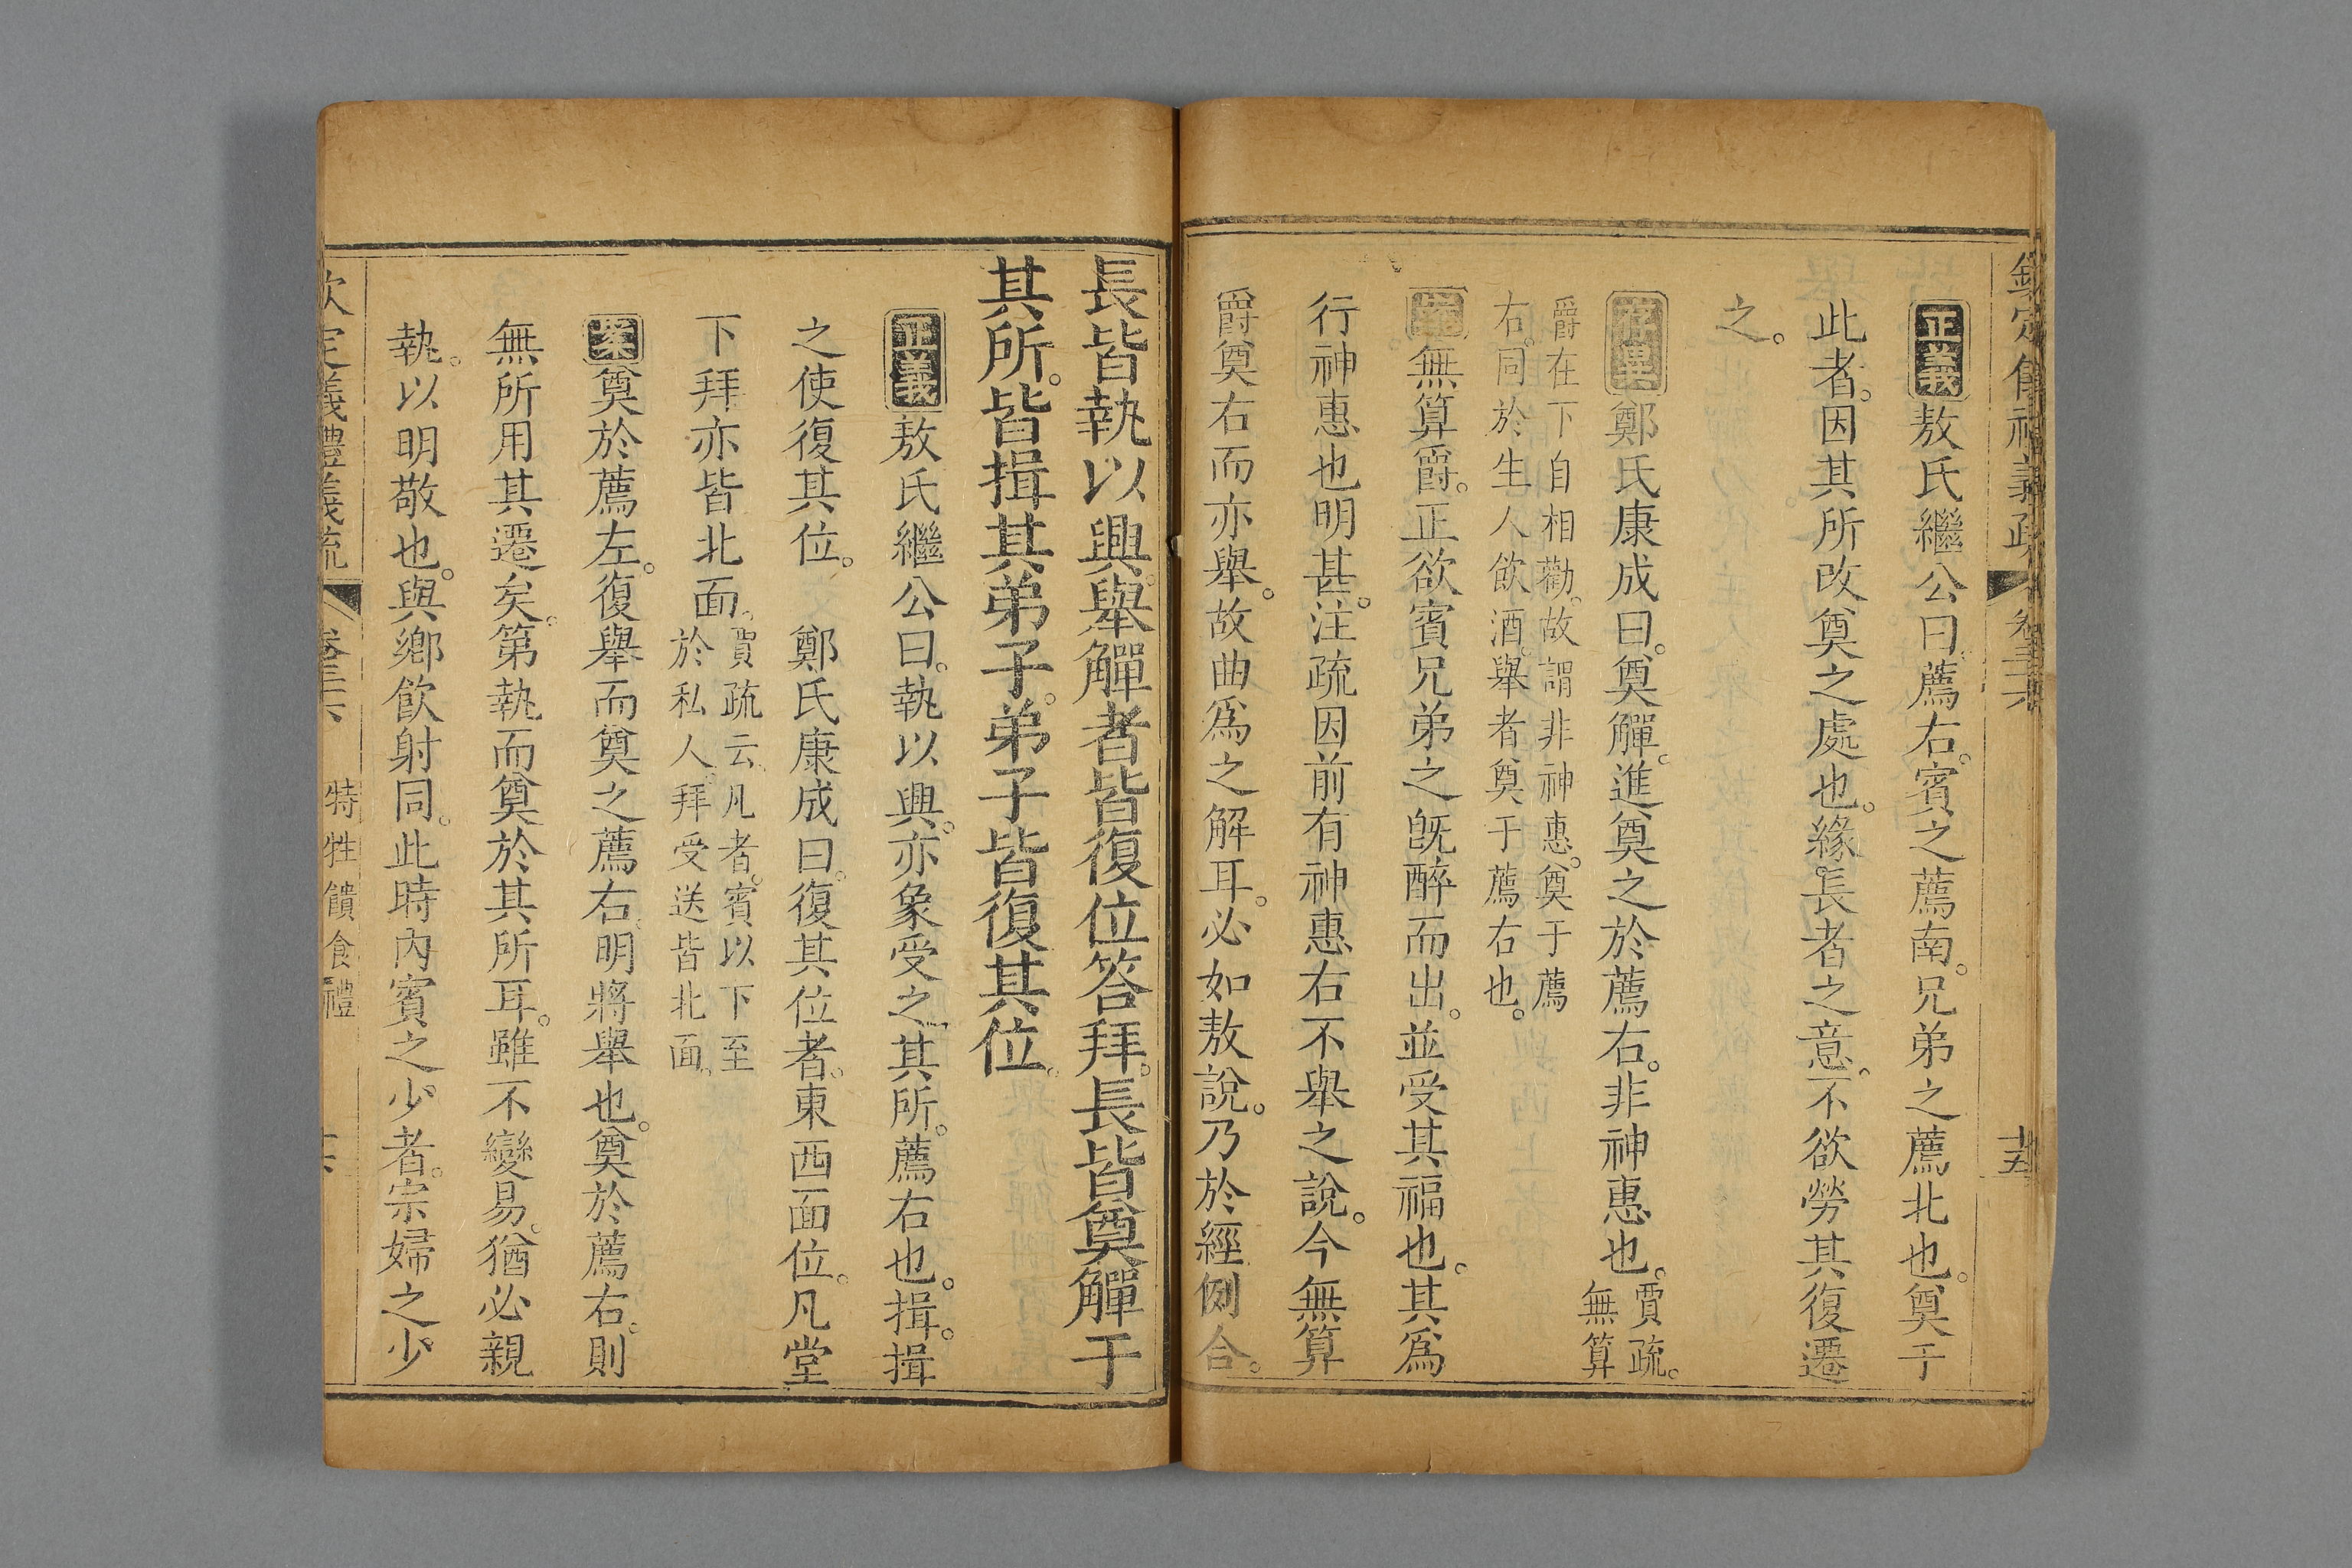 欽定儀禮義疏 卷三十六 十五
正義敖氏繼公曰。薦右。賓之薦南。兄弟之薦北也。奠于
此者。因其所改奠之處也。緣長者之意。不欲勞其復遷
之。
存異鄭氏康成曰。奠觶。進奠之於薦右。非神惠也。賈疏。無算
爵在下自相勸。故謂非神惠。奠于薦
右。同於生人飲酒。舉者奠于薦右也。
無算爵。正欲賓兄弟之旣醉而出。並受其福也。其爲
行神惠也明甚。注疏因前有神惠右不舉之說。今無算
爵奠右而亦舉。故曲爲之解耳。必如敖說。乃於經例合。
長皆執以興。舉觶者皆復位答拜。長皆奠觶于
其所。皆揖其弟子。弟子皆復其位。
正義敖氏繼公曰。執以興。亦象受之。其所。薦右也。揖。揖
之使復其位。 鄭氏康成曰。復其位者。東西面位。凡堂
下拜亦皆北面。賈疏云。凡者。賓以下至
於私人。拜受送皆北面。
案奠於薦左。復舉而奠之薦右。明將舉也。奠於薦右。則
無所用其遷矣。第執而奠於其所耳。雖不變易。猶必親
執。以明敬也。與鄉飮射同。此時內賓之少者。宗婦之少
欽定義禮義疏 卷三十六 特牲饋食禮 十六